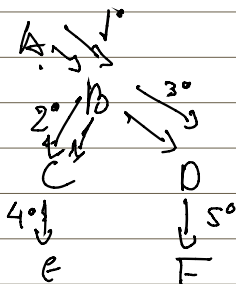 A 1°
B
2° 3°
C D
4° 5°
e F